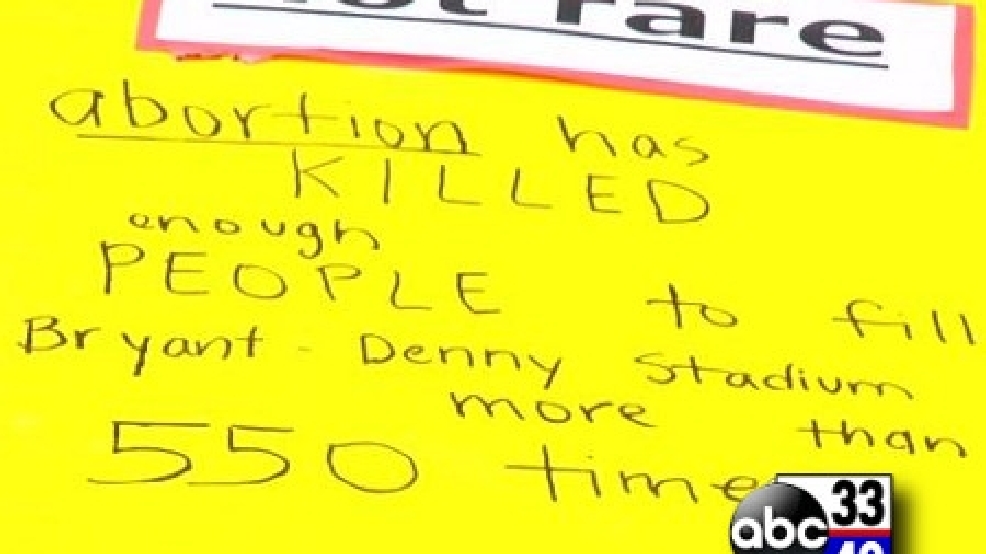 not rare
abortion has
KILLED
enough
PEOPLE to fill
Bryant-Denny Stadium
more than
550 time
abc 33
40